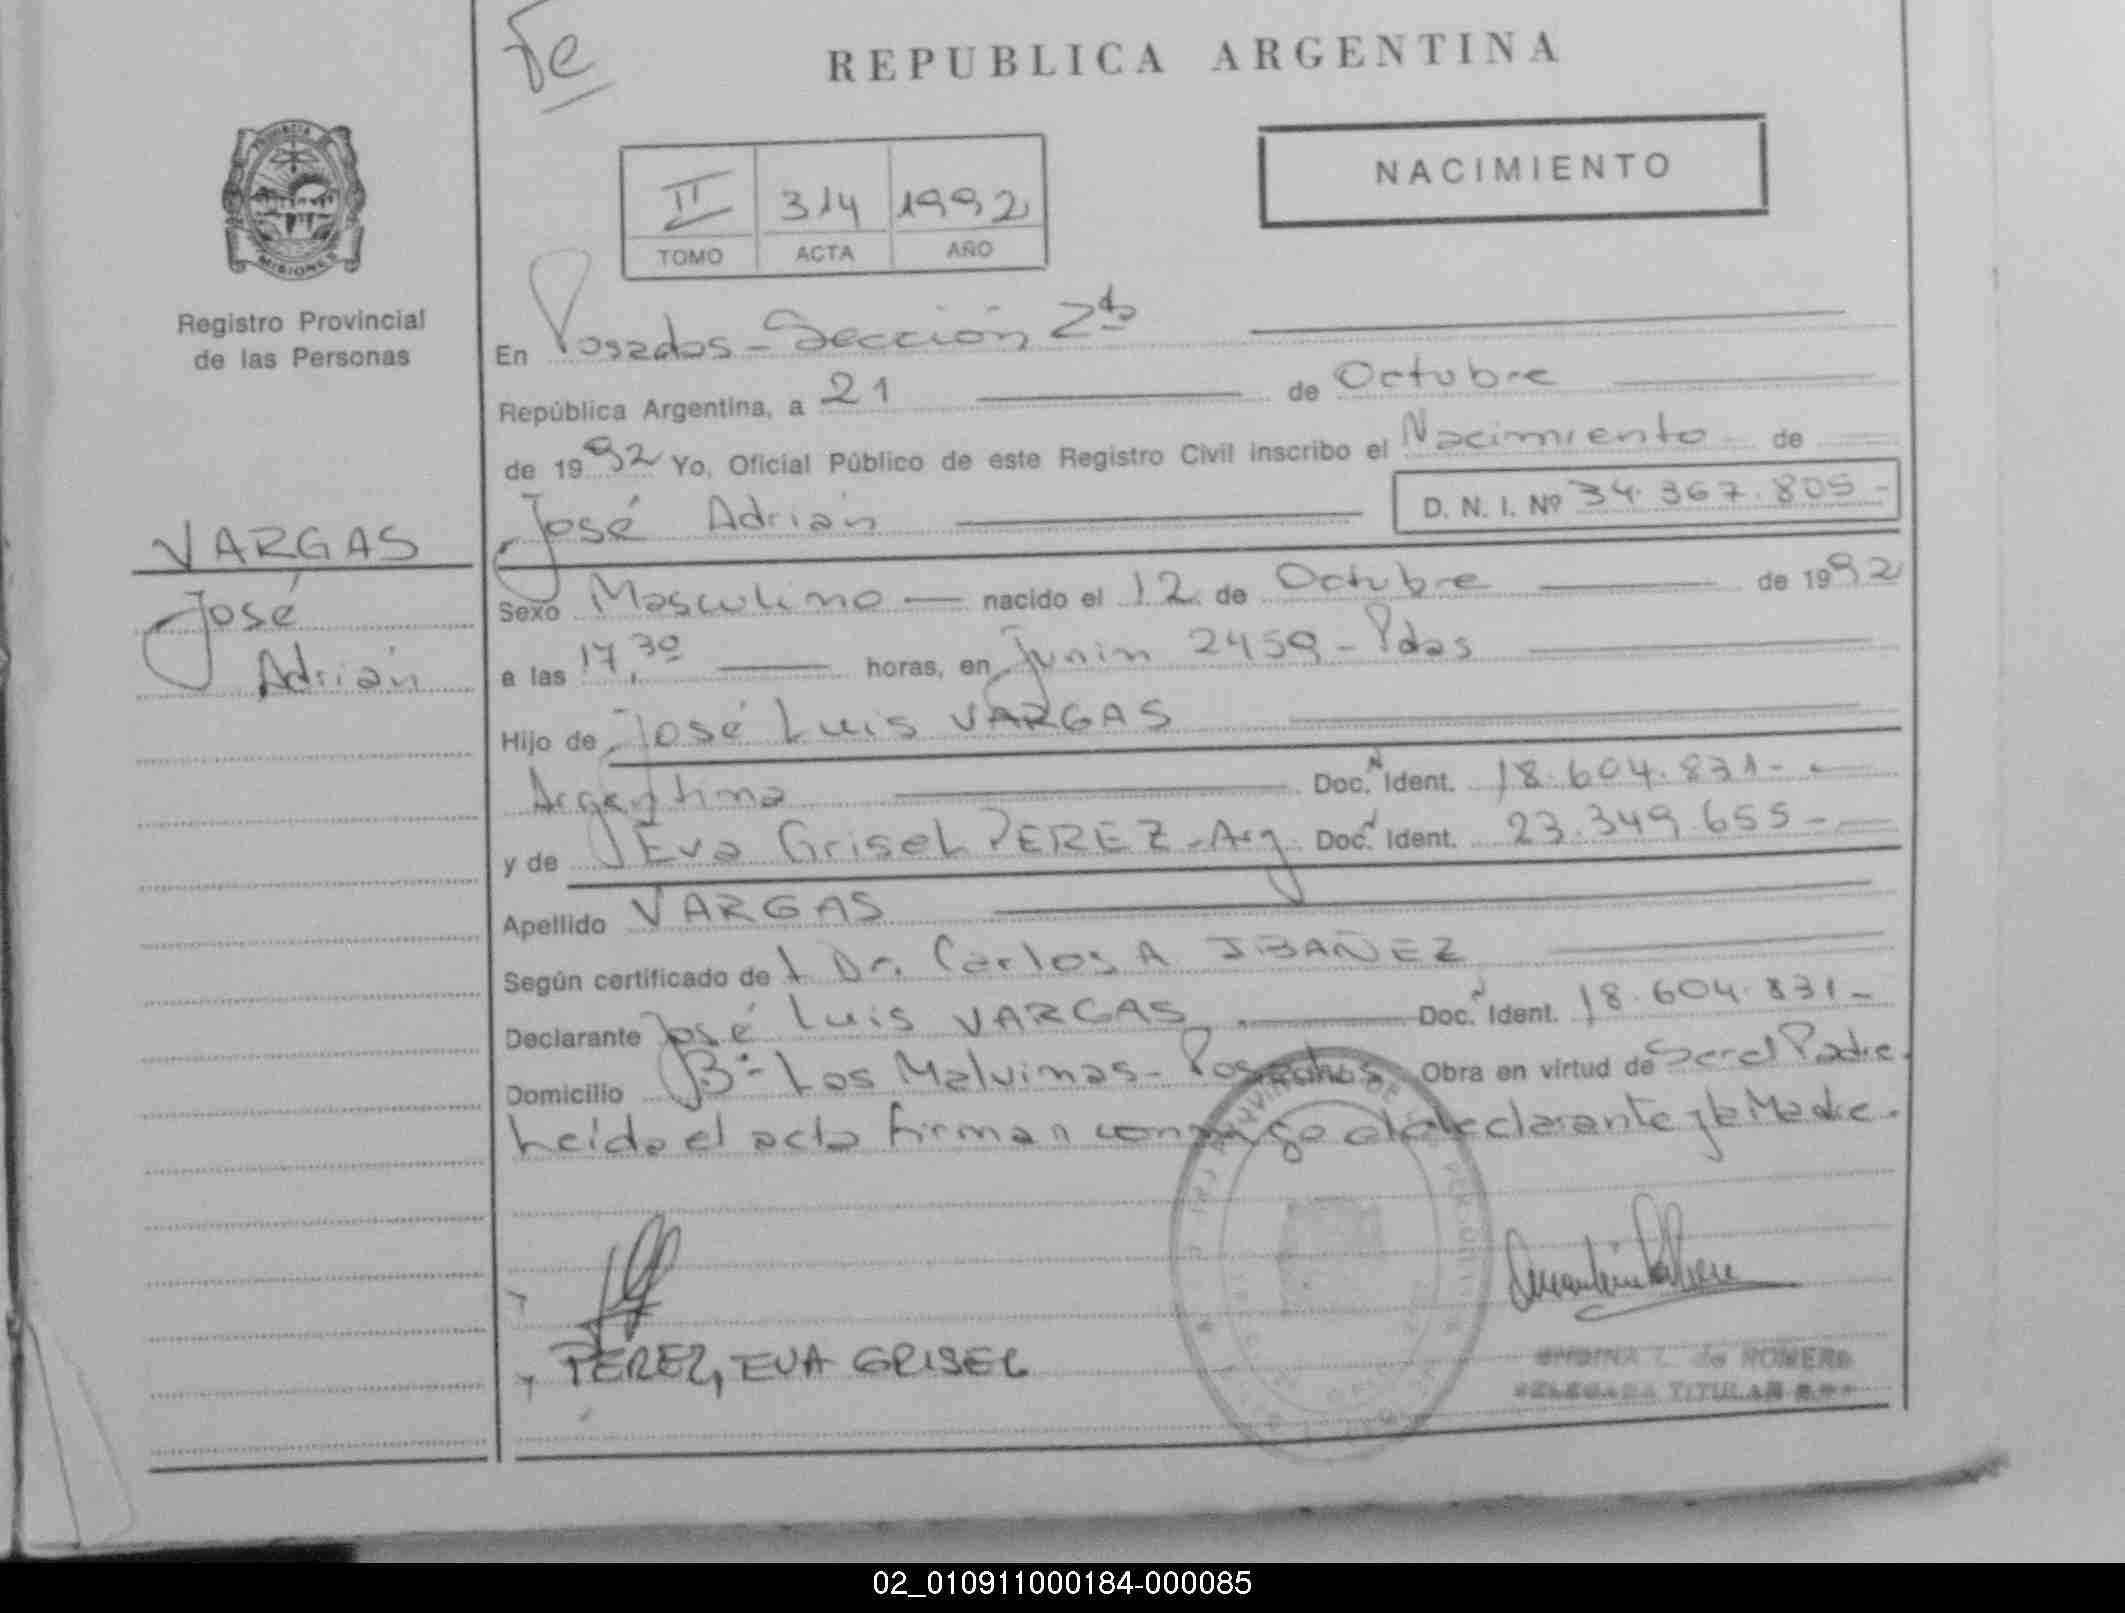 Te
REPUBLICA ARGENTINA
NACIMIENTO
II 314 1992
TOMO ACTA AÑO
PROVINCIA
MISIONES
Registro Provincial
de las Personas
VARGAS
José
Adrián
En Posadas - Sección 2da
República Argentina, a 21 de Octubre
de 1992 Yo, Oficial Público de este Registro Civil inscribo el Nacimiento de
José Adrián D. N. I. Nº 34.367.805-
Sexo Masculino nacido el 12 de Octubre de 1992
a las 17,30 horas, en Junin 2459 - Pdas
Hijo de José Luis VARGAS
Argentina Doc. Ident. 18.604.831-
y de Eva Grisel PEREZ - Arg. Doc. Ident. 23.349.655-
Apellido VARGAS
Según certificado del Dr. Carlos A IBAÑEZ
Declarante José Luis VARGAS Doc. Ident. 18.604.831-
Domicilio Bº Las Malvinas - Posadas Obra en virtud de Ser el Padre.
Leida el acta firman conmigo el declarante y la Madre.
PEREZ, EVA GRISEL
de ROMERO
DELEGADA TITULAR
02_010911000184-000085